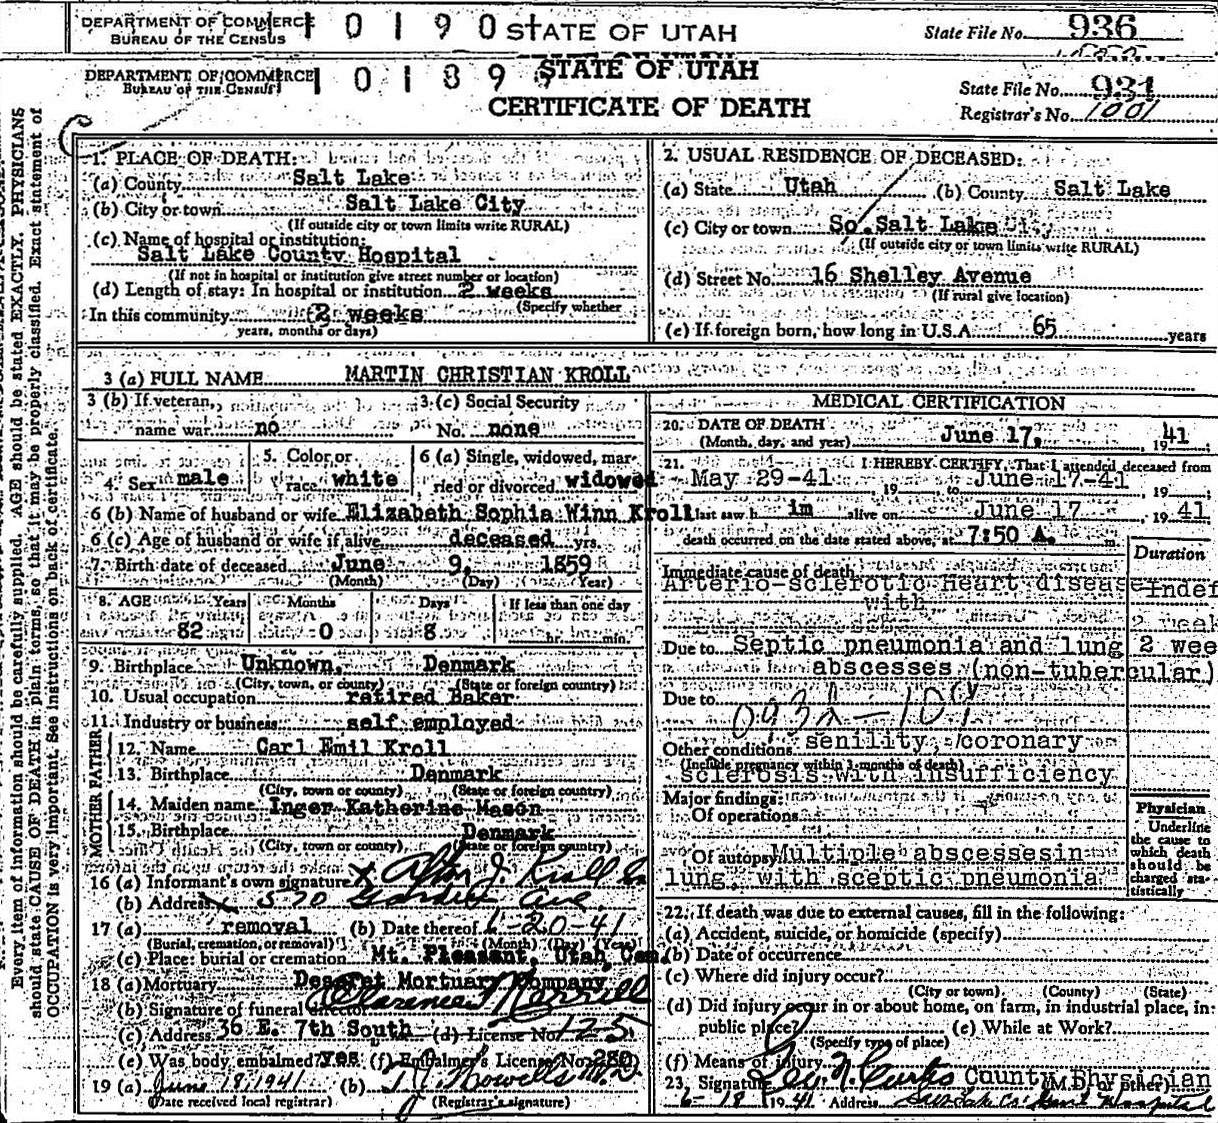 DEPARTMENT OF COMMERCE
BUREAU OF THE CENSUS
1 0 1 9 0 STATE OF UTAH
State File No. 936
DEPARTMENT OF COMMERCE
BUREAU OF THE CENSUS
1 0 1 8 9
STATE OF UTAH
CERTIFICATE OF DEATH
State File No. 931
Registrar's No. 1001
Every item of information should be carefully supplied. AGE should be stated EXACTLY. PHYSICIANS
should state CAUSE OF DEATH in plain terms, so that it may be properly classified. Exact statement of
OCCUPATION is very important. See instructions on back of certificate.
1. PLACE OF DEATH:
(a) County Salt Lake
(b) City or town Salt Lake City
(If outside city or town limits write RURAL)
(c) Name of hospital or institution:
Salt Lake County Hospital
(If not in hospital or institution give street number or location)
(d) Length of stay: In hospital or institution 2 weeks
(Specify whether
In this community 2 weeks
years, months or days)
2. USUAL RESIDENCE OF DECEASED:
(a) State Utah (b) County Salt Lake
(c) City or town So. Salt Lake City
(If outside city or town limits write RURAL)
(d) Street No. 16 Shelley Avenue
(If rural give location)
(e) If foreign born, how long in U.S.A. 65 years
3 (a) FULL NAME MARTIN CHRISTIAN KROLL
3 (b) If veteran, 3 (c) Social Security
name war no No. none
4. Sex male 5. Color or race white 6 (a) Single, widowed, married or divorced widowed
6 (b) Name of husband or wife Elizabeth Sophia Winn Kroll
6 (c) Age of husband or wife if alive deceased yrs.
7. Birth date of deceased June 9, 1859
(Month) (Day) (Year)
8. AGE Years Months Days If less than one day
82 0 8 hr. min.
9. Birthplace Unknown, Denmark
(City, town, or county) (State or foreign country)
10. Usual occupation retired Baker
11. Industry or business self employed
FATHER
12. Name Carl Emil Kroll
13. Birthplace Denmark
(City, town or county) (State or foreign country)
MOTHER
14. Maiden name Inger Katherine Mason
15. Birthplace Denmark
(City, town or county) (State or foreign country)
16 (a) Informant's own signature X J. Kroll
(b) Address 570 Garden Ave
17 (a) removal (b) Date thereof 6-20-41
(Burial, cremation, or removal) (Month) (Day) (Year)
(c) Place: burial or cremation Mt. Pleasant, Utah Cem.
18 (a) Mortuary Deseret Mortuary Company
(b) Signature of funeral director Clarence Merrill
(c) Address 36 E. 7th South (d) License No. 125
(e) Was body embalmed? Yes (f) Embalmer's License No. 280
19 (a) June 18, 1941 (b) Howells M.D.
(Date received local registrar) (Registrar's signature)
MEDICAL CERTIFICATION
20. DATE OF DEATH
(Month, day, and year) June 17, 1941
21. I HEREBY CERTIFY, That I attended deceased from
May 29-41 19 to June 17-41, 19
last saw h im alive on June 17, 1941
death occurred on the date stated above, at 7:50 A. m.
Duration
Immediate cause of death
Arterio-sclerotic Heart disease Indef
with
2 week
Due to Septic pneumonia and lung 2 wee
abscesses (non-tubercular)
Due to
093d-109
Other conditions senility, coronary
(Include pregnancy within 3 months of death)
sclerosis with insufficiency
Major findings:
Of operations
Of autopsy Multiple abscessesin
lung, with sceptic pneumonia
Physician
Underline
the cause to
which death
should be
charged sta-
tistically
22. If death was due to external causes, fill in the following:
(a) Accident, suicide, or homicide (specify)
(b) Date of occurrence
(c) Where did injury occur?
(City or town) (County) (State)
(d) Did injury occur in or about home, on farm, in industrial place, in
public place? (e) While at Work?
(Specify type of place)
(f) Means of injury
23. Signature Geo. N. Curtis County Physician
(M.D. or other)
6-18 1941 Address Salt Lake Co. Genl Hospital